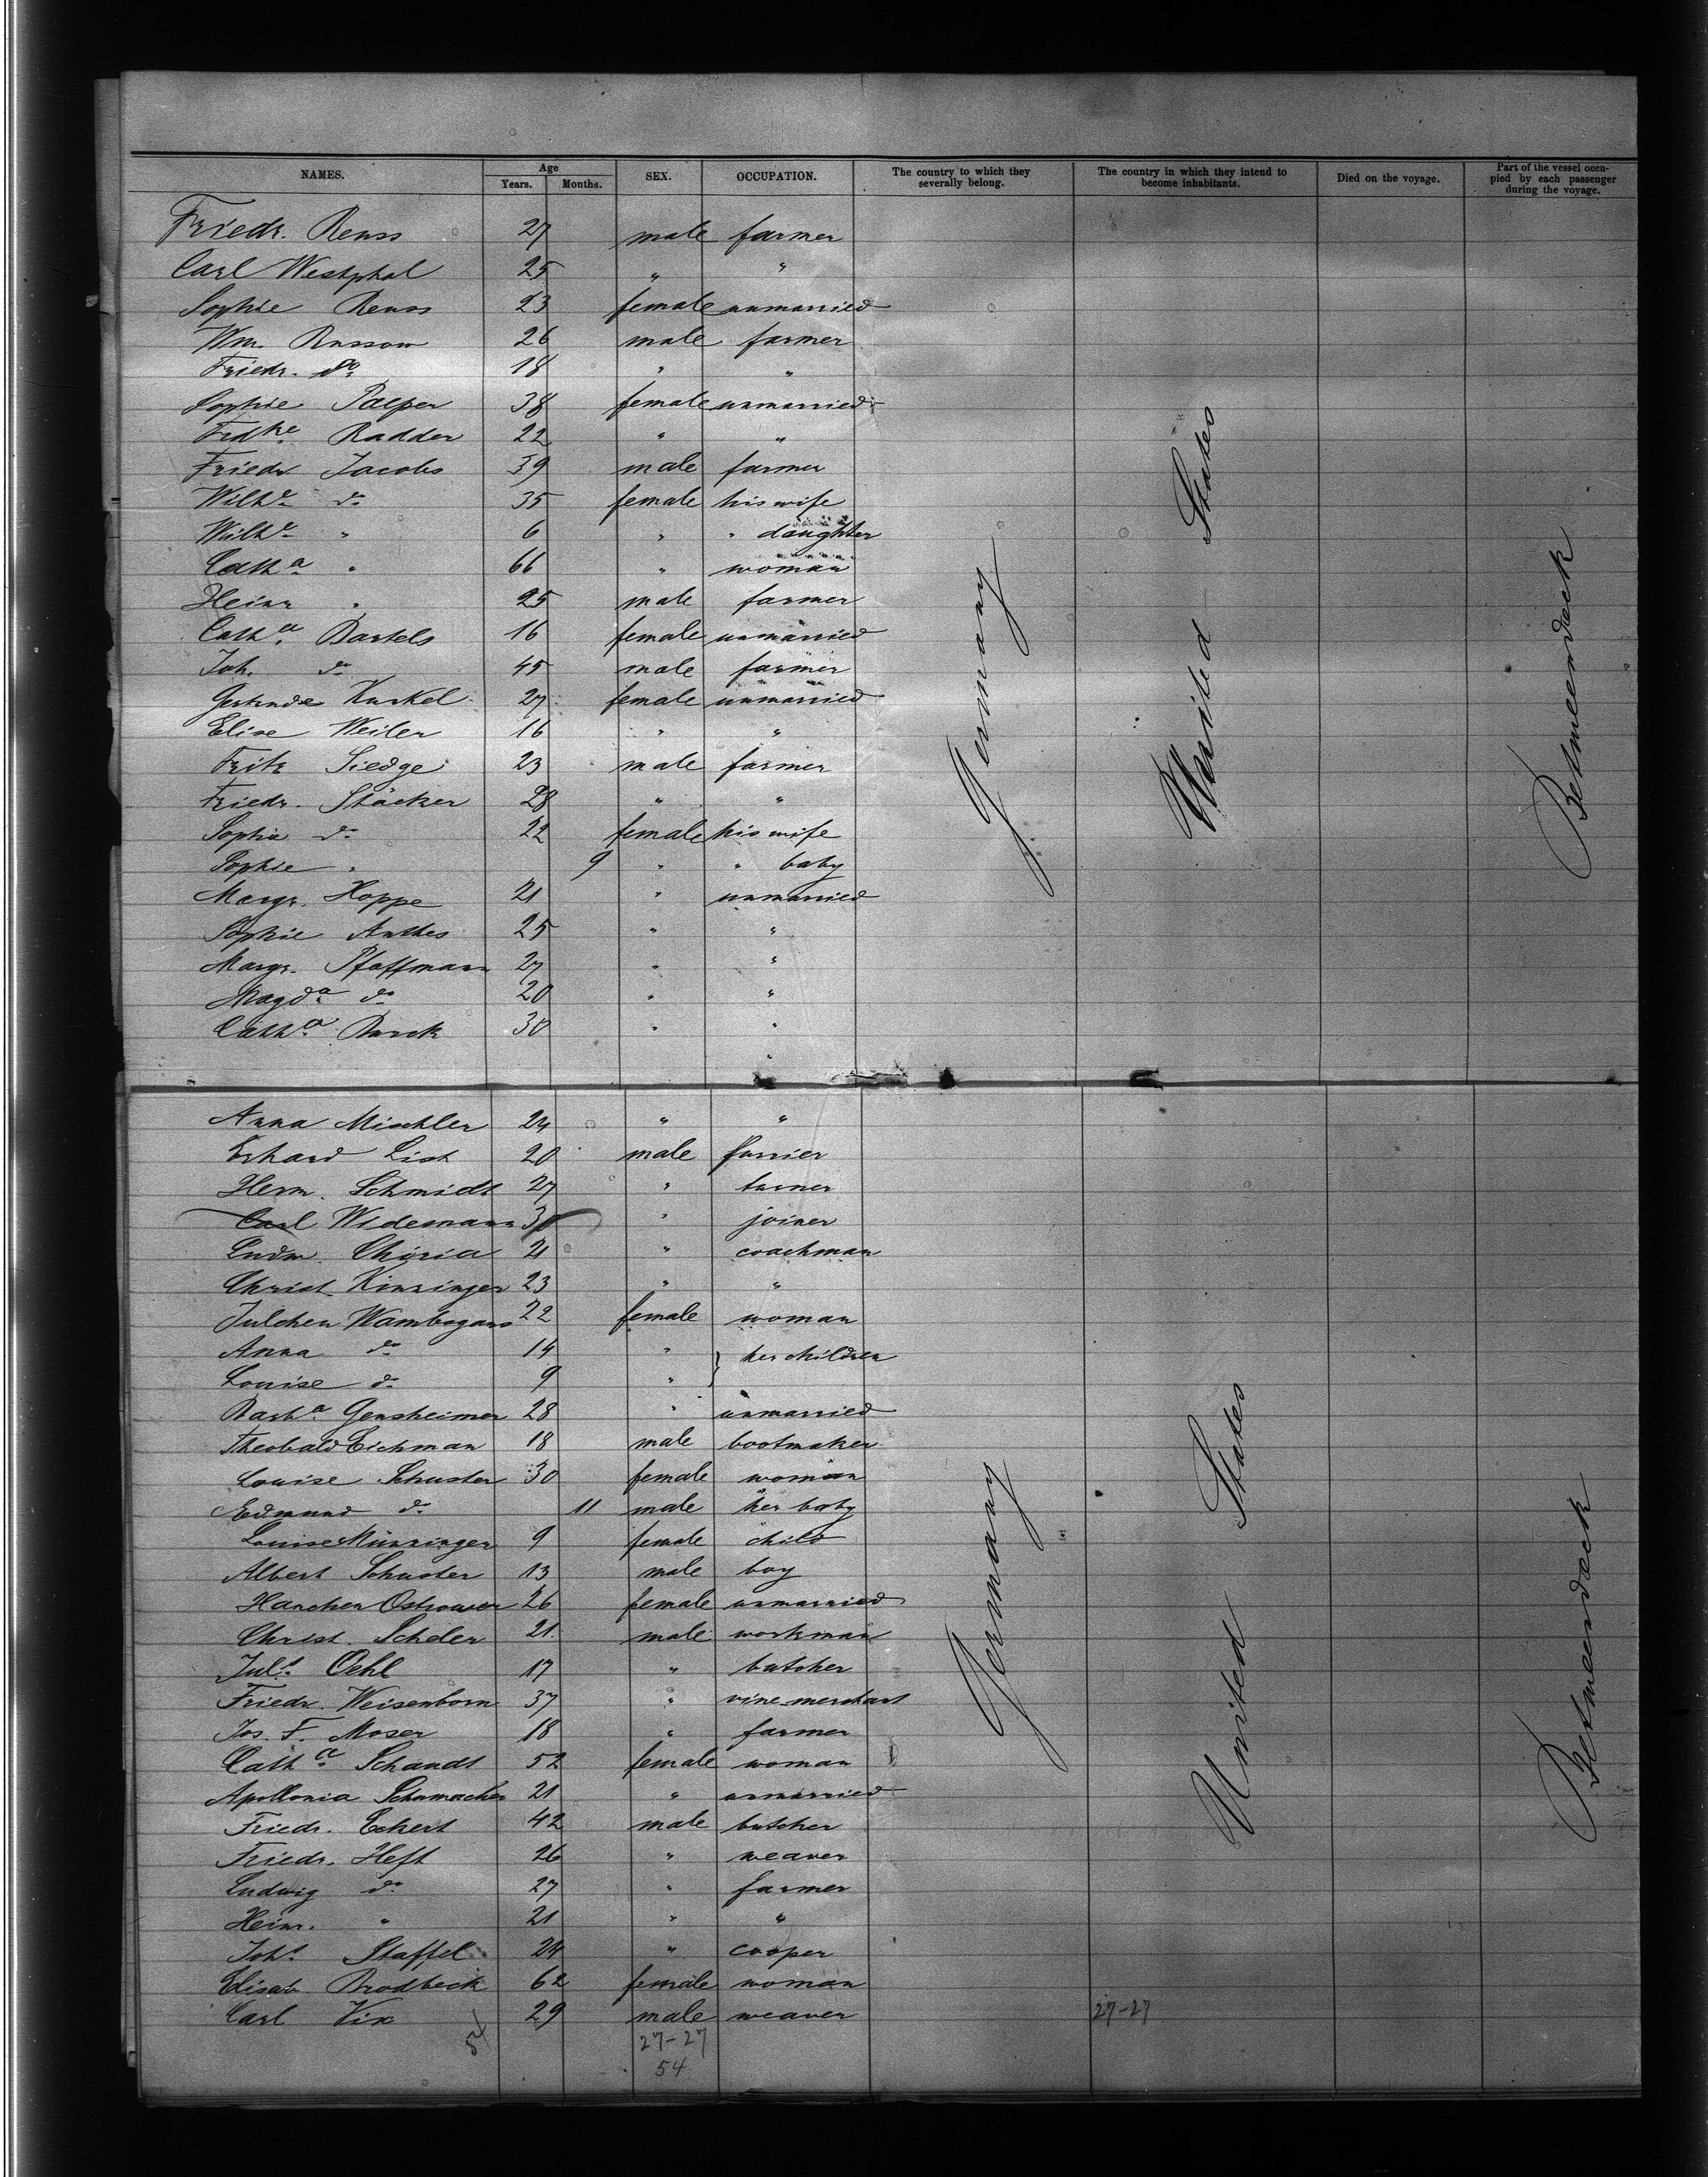 NAMES. Age Years. Months. SEX. OCCUPATION. The country to which they severally belong. The country in which they intend to become inhabitants. Died on the voyage. Part of the vessel occupied by each passenger during the voyage.
Friedr. Reuss 27 male farmer
Carl Westphal 25 " "
Sophie Reuss 23 female unmarried
Wm. Russow 26 male farmer
Friedr. do 18 " "
Sophie Paeper 38 female unmarried
Fridke Radder 22 " "
Friedr Jacobs 39 male farmer
Wilhe do 35 female his wife
Wilhe " 6 " " daughter
Catha " 66 " woman
Heinr " 25 male farmer
Catha Bartels 16 female unmarried
Joh. do 45 male farmer
Gertrude Kunkel 27 female unmarried
Elise Weiler 16 " "
Fritz Siedge 23 male farmer
Friedr. Stäcker 28 " "
Sophie do 22 female his wife
Sophie " 9 " " baby
Margr. Hoppe 21 " unmarried
Sophie Anthes 25 " "
Margr. Pfaffmann 27 " "
Magda do 20 " "
Catha Burck 30 " "
"
Germany
United States
Betweendeck
Anna Mischler 24 " "
Erhard List 20 male furrier
Herm. Schmidt 27 " turner
Carl Widemann 30 " joiner
Ludw. 21 " coachman
Christ. Kinzinger 23 " "
Julchen Wambsgans 22 female woman
Anna do 14 " } her children
Louise do 9 "
Barba Gensheimer 28 " unmarried
Theobald Eichman 18 male bootmaker
Louise Schuster 30 female woman
Edmund do 11 male her baby
Louise Münzinger 9 female child
Albert Schuster 13 male boy
Hanchen Ostrower 26 female unmarried
Christ. Scheler 21. male workman
Juls Oehl 17 " butcher
Friedr. Weisenborn 37 " vine merchant
Jos. F. Moser 18 " farmer
Catha Schandt 52 female woman
Apollonia Schumacher 21 " unmarried
Friedr. Eckert 42 male butcher
Friedr. Heft 26 " weaver
Ludwig do 27 " farmer
Heinr. " 21 " "
Johs Staffel 24 " cooper
Elisab. Brodbeck 62 female woman
Carl Vix 29 male weaver 27-27
54 27-27
54
Germany
United States
Betweendeck